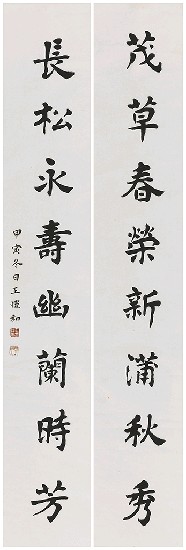 茂草春榮新蒲秋秀
長松永壽幽蘭時芳
甲寅冬日王愷和